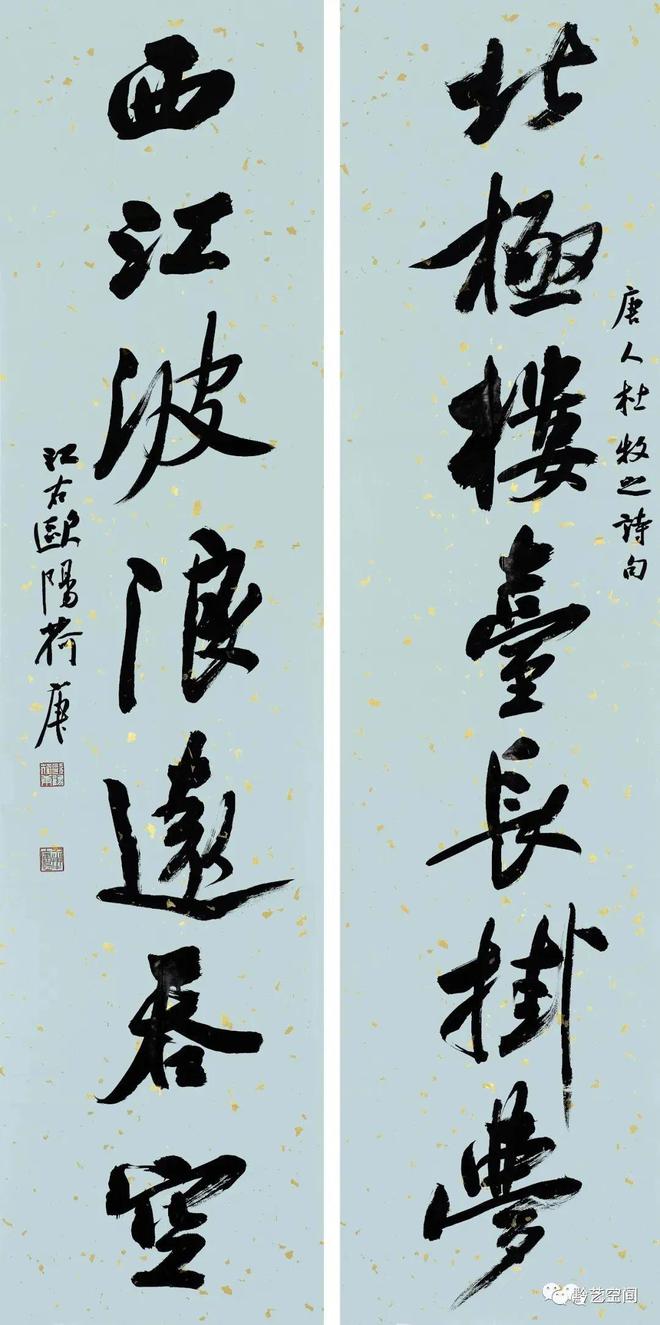 唐人杜牧之詩句
北極樓臺長掛夢
西江波浪遠吞空
江右歐陽荷庚
黔艺空间